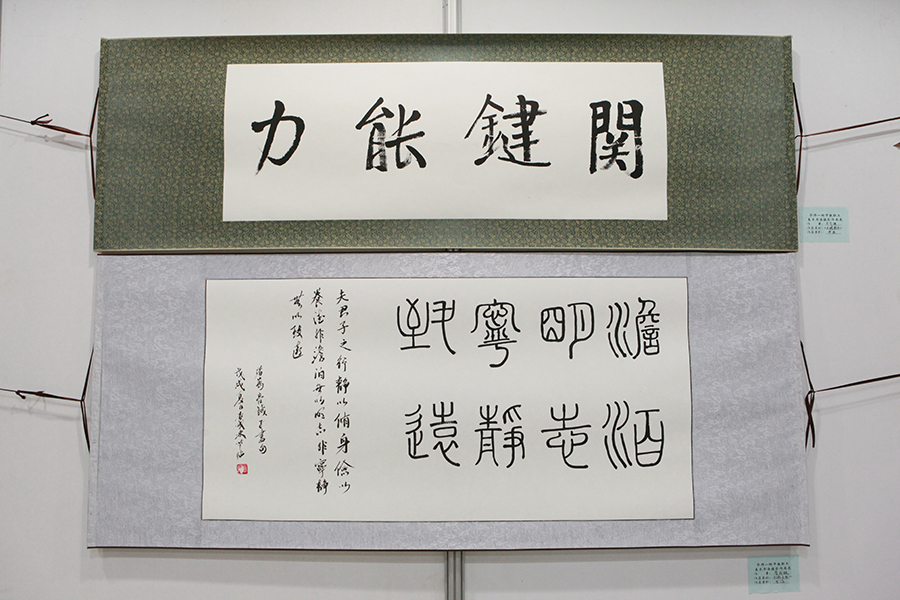 関鍵能力
澹泊
明志
寧靜
致遠
夫君子之行静以脩身儉以
養德非澹泊無以明志非寧静
無以致遠
諸葛亮誡子書句
戊戌